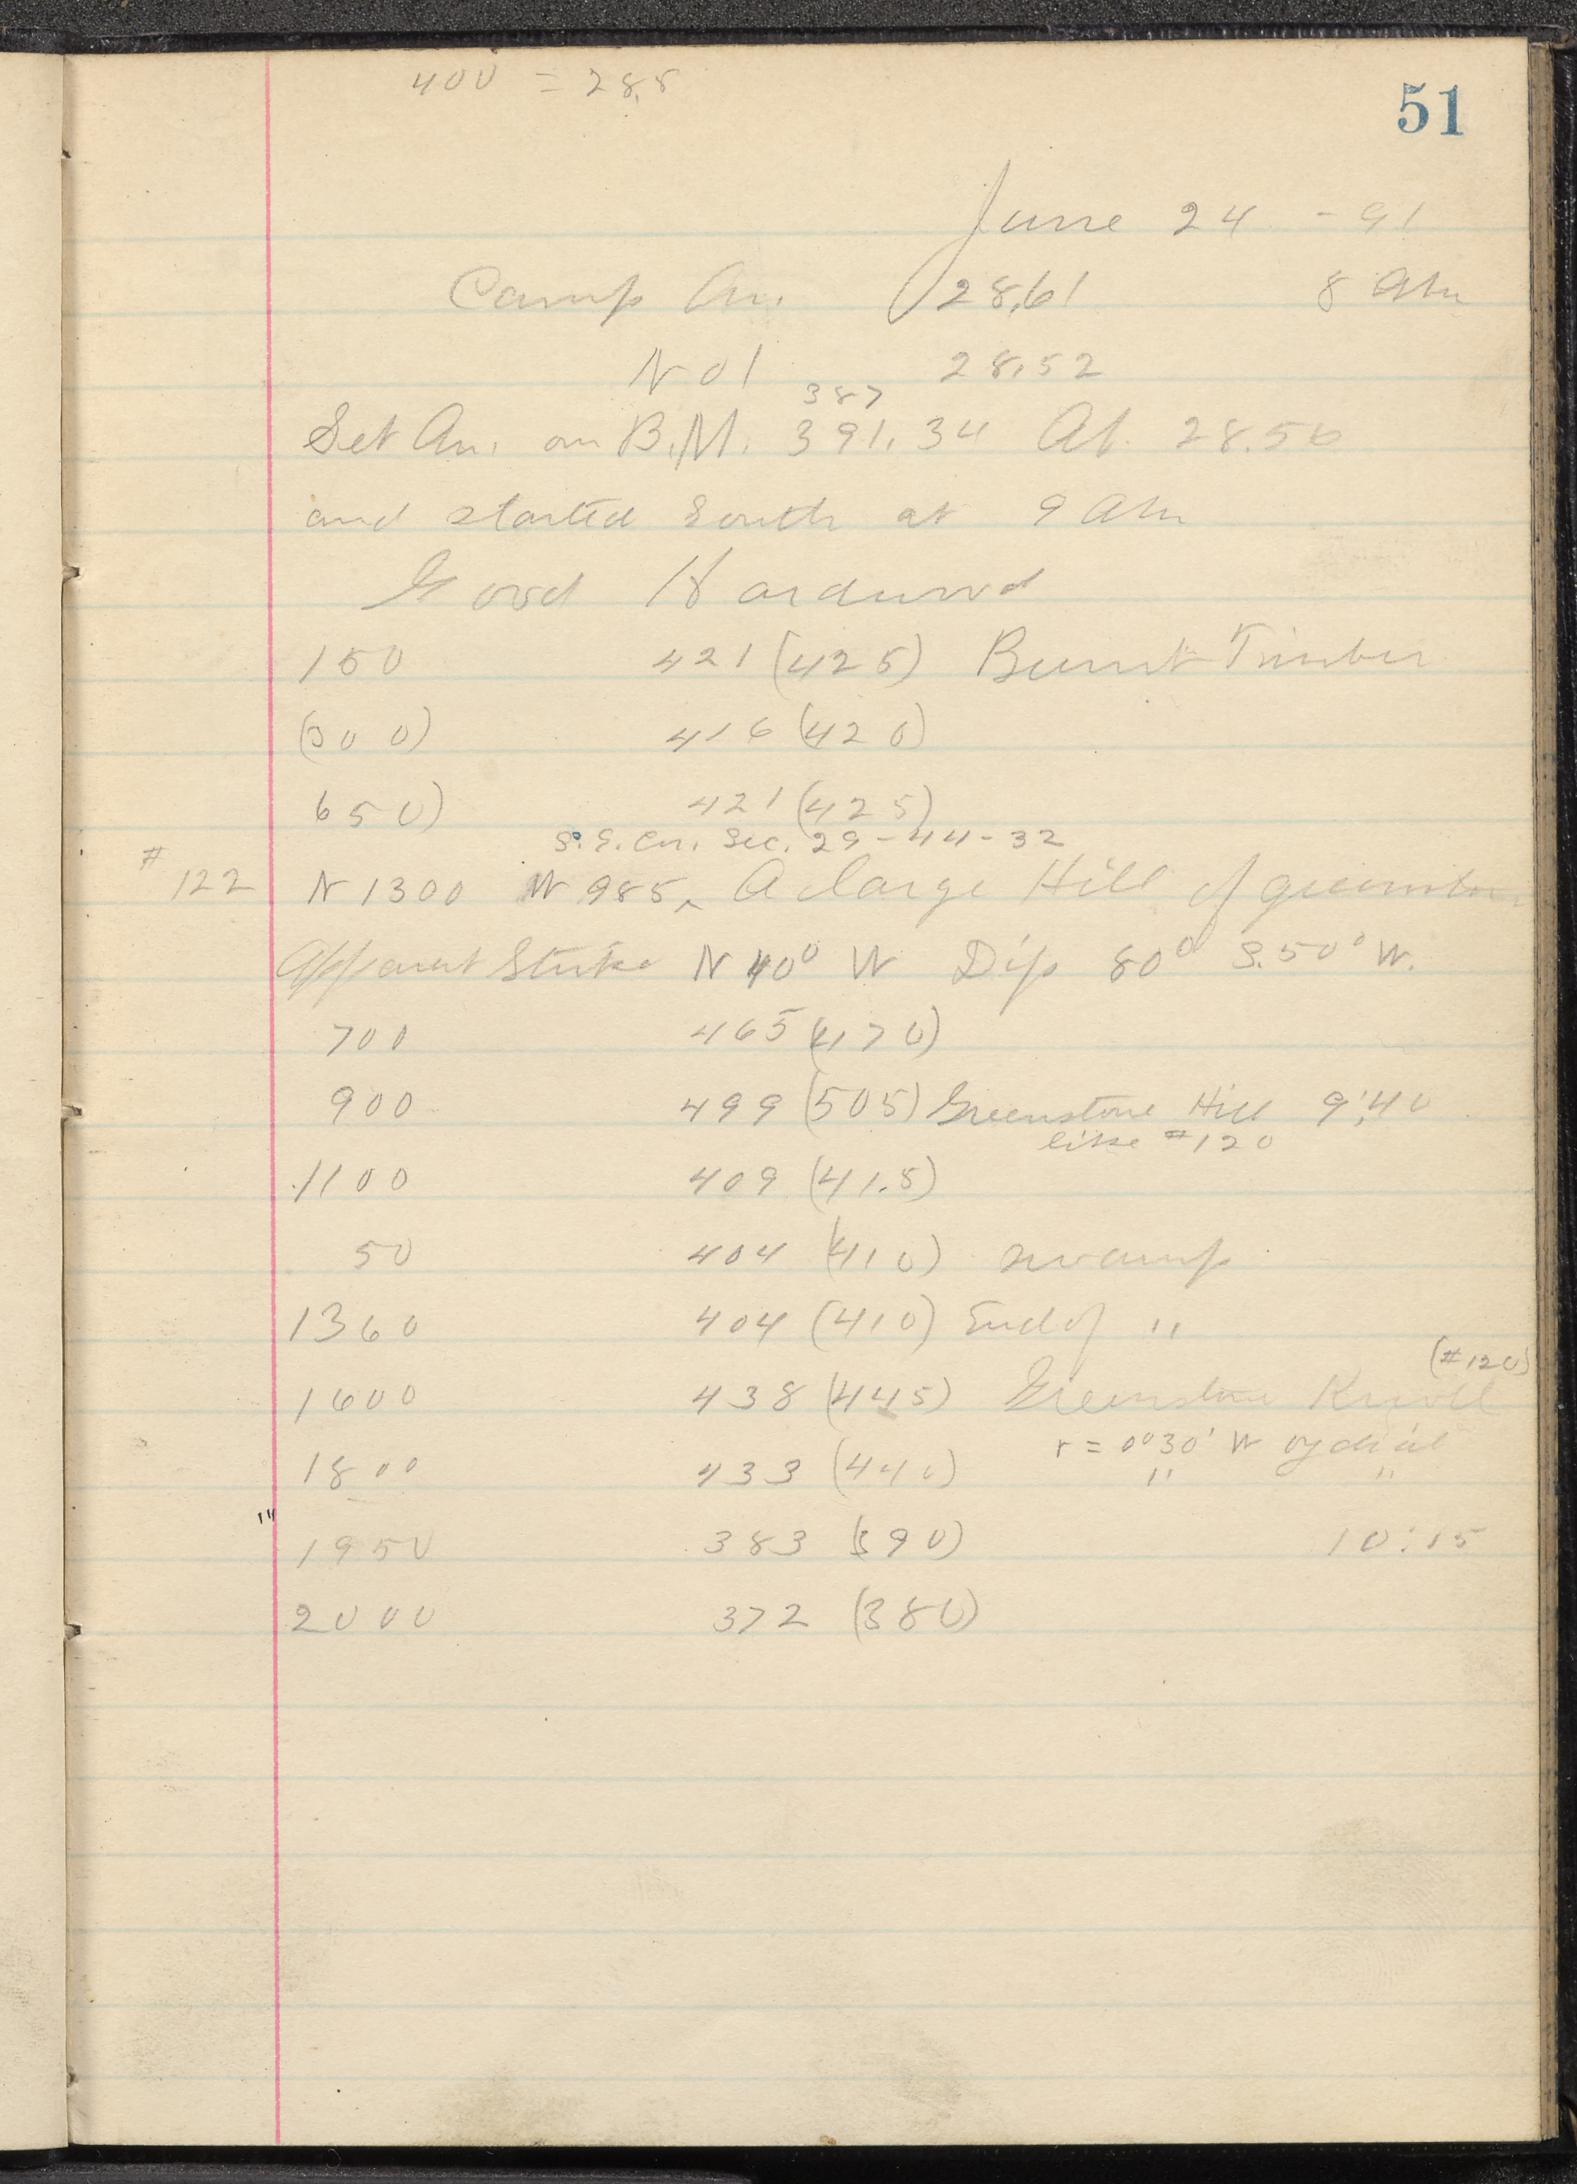 400 = 28.5
51
June 24 - 91
Camp An. 28.61 8 Am
No 1 28.52
387
Set An. on B.M. 391.34 At. 28.50
and started South at 9 Am
Good Hardwood
150 421 (425) Burnt Timber
(300) 416 (420)
650) 421 (425)
S.E. Cor. Sec. 29-44-32
# 122 N 1300 W 985 ‸ A large Hill of greenstone
Apparent Strike N 40° W Dip 80° S. 50° W.
700 465 (470)
900 499 (505) Greenstone Hill 9:40
like #120
1100 409 (415)
50 404 (410) swamp
1360 404 (410) End of "
(#120)
1600 438 (445) Greenstone Knoll
r = 0°30' W by dial
1800 433 (440) " "
1950 383 (390) 10:15
2000 372 (380)